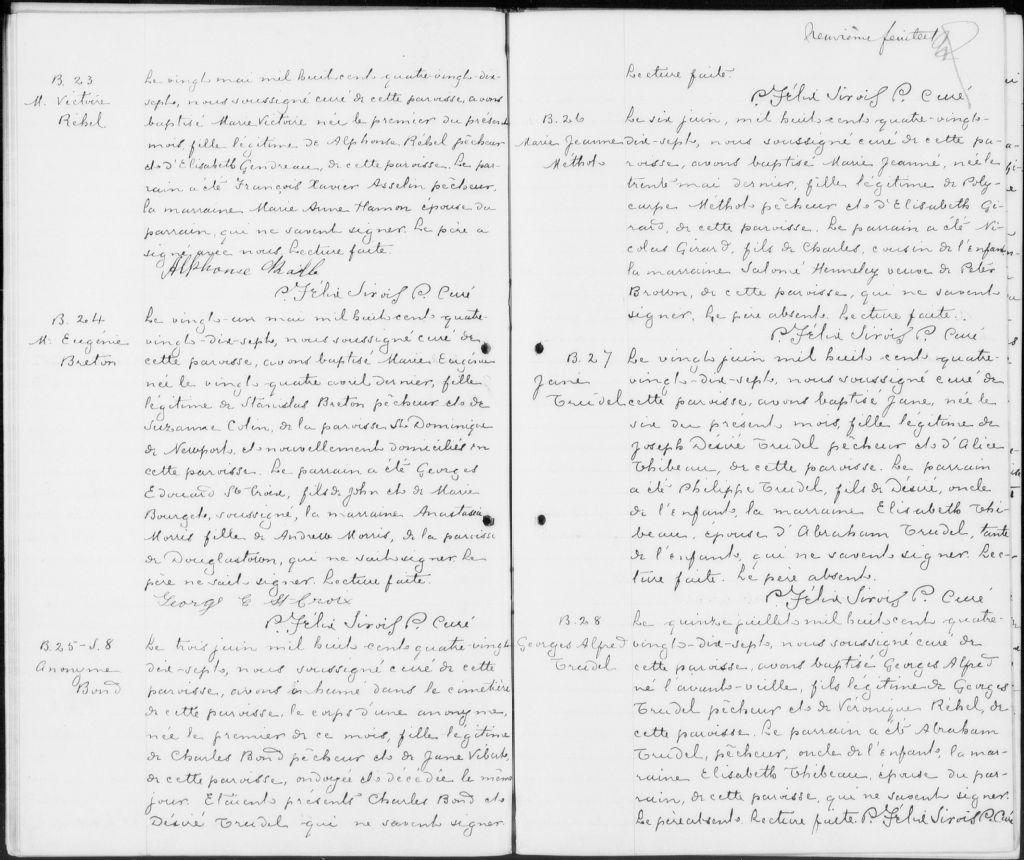 B. 23
M. Victoire
Réhel
Le vingt mai mil huit cent quatre-vingt-dix-
sept, nous soussigné curé de cette paroisse, avons
baptisé Marie Victoire née le premier du présent
mois, fille légitime de Alphonse Réhel pêcheur
et d'Elisabeth Gendreau, de cette paroisse. Le par-
rain a été François Xavier Asselin pêcheur,
la marraine Marie Anne Hamon épouse du
parrain, qui ne savent signer. Le père a
signé avec nous. Lecture faite.
Alphonse
P. Félix Sirois P. Curé
B. 24
M. Eugénie
Breton
Le vingt-un mai mil huit cent quatre-
vingt-dix-sept, nous soussigné curé de
cette paroisse, avons baptisé Marie Eugénie
née le vingt-quatre avril dernier, fille
légitime de Stanislas Breton pêcheur et de
Suzanne Colin, de la paroisse St. Dominique
de Newport, et nouvellement domiciliés en
cette paroisse. Le parrain a été Georges
Edouard Ste Croix, fils de John et de Marie
Bourget, soussigné, la marraine Anastasia
Morris fille de Andrew Morris, de la paroisse
de Douglastown, qui ne sait signer. Le
père ne sait signer. Lecture faite.
George E St Croix
P. Félix Sirois P. Curé
B. 25 - S. 8
Anonyme
Bond
Le trois juin mil huit cent quatre-vingt-
dix-sept, nous soussigné curé de cette
paroisse, avons inhumé dans le cimetière
de cette paroisse, le corps d'une anonyme,
née le premier de ce mois, fille légitime
de Charles Bond pêcheur et de Jane Vibert,
de cette paroisse, ondoyée et décédée le même
jour. Etaient présents Charles Bond et
Désiré Trudel qui ne savent signer.
Neuvième feuillet
Lecture faite.
P. Félix Sirois P. Curé
B. 26
Marie Jeanne
Méthot
Le six juin, mil huit cent quatre-vingt-
dix-sept, nous soussigné curé de cette pa-
roisse, avons baptisé Marie Jeanne, née le
trente mai dernier, fille légitime de Poly-
carpe Méthot pêcheur et d'Elisabeth Gi-
rard, de cette paroisse. Le parrain a été Ni-
colas Girard, fils de Charles, cousin de l'enfant
la marraine Salomé Hemeley veuve de Peter
Brown, de cette paroisse, qui ne savent
signer. Le père absent. Lecture faite.
P. Félix Sirois P. Curé
B. 27
Jane
Trudel
Le vingt juin mil huit cent quatre-
vingt-dix-sept, nous soussigné curé de
cette paroisse, avons baptisé Jane, née le
six du présent mois, fille légitime de
Joseph Désiré Trudel pêcheur et d'Alice
Thibeau, de cette paroisse. Le parrain
a été Philippe Trudel, fils de Désiré, oncle
de l'enfant, la marraine Elisabeth Thi-
beau, épouse d'Abraham Trudel, tante
de l'enfant, qui ne savent signer. Lec-
ture faite. Le père absent.
P. Félix Sirois P. Curé
B. 28
Georges Alfred
Trudel
Le quinze juillet mil huit cent quatre-
vingt-dix-sept, nous soussigné curé de
cette paroisse, avons baptisé Georges Alfred
né l'avant-veille, fils légitime de Georges
Trudel pêcheur et de Véronique Réhel, de
cette paroisse. Le parrain a été Abraham
Trudel, pêcheur, oncle de l'enfant, la mar-
raine Elisabeth Thibeau, épouse du par-
rain, de cette paroisse, qui ne savent signer.
Le père absent. Lecture faite. P. Félix Sirois P. Curé